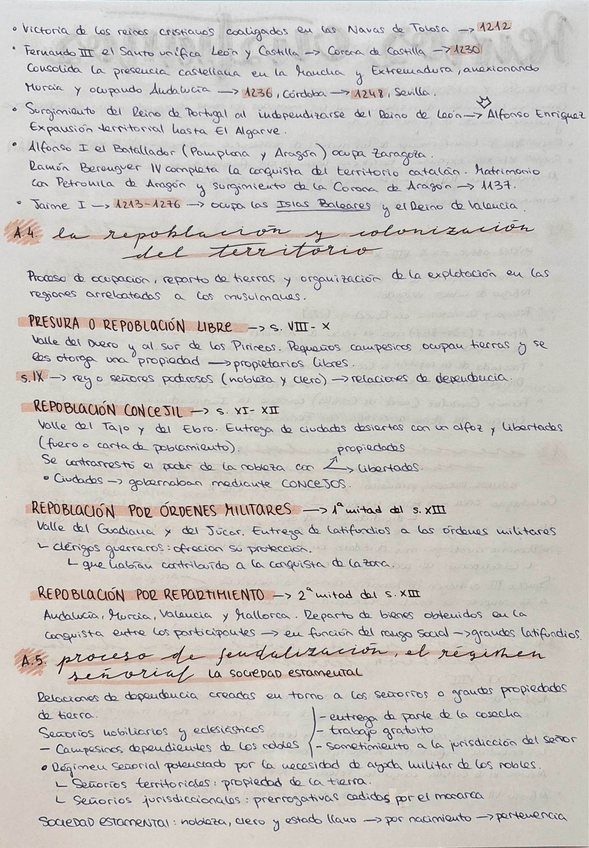 • Victoria de los reinos cristianos coaligados en las Navas de Tolosa → 1212
• Fernando III el Santo unifica León y Castilla → Corona de Castilla → 1230
Consolida la presencia castellana en la Mancha y Extremadura, anexionando
Murcia y ocupando Andalucía → 1236, Córdoba → 1248, Sevilla.
• Surgimiento del Reino de Portugal al independizarse del Reino de León → Alfonso Enríquez
Expansión territorial hasta El Algarve.
• Alfonso I el Batallador (Pamplona y Aragón) ocupa Zaragoza.
Ramón Berenguer IV completa la conquista del territorio catalán. Matrimonio
con Petronila de Aragón y surgimiento de la Corona de Aragón → 1137.
• Jaime I → 1213-1276 → ocupa las Islas Baleares y el Reino de Valencia.
A.4. la repoblación y colonización
del territorio
Proceso de ocupación, reparto de tierras y organización de la explotación en las
regiones arrebatadas a los musulmanes.
PRESURA O REPOBLACIÓN LIBRE → s. VIII - X
Valle del Duero y al sur de los Pirineos. Pequeños campesinos ocupan tierras y se
les otorga una propiedad → propietarios libres.
s. IX → rey o señores poderosos (nobleza y clero) → relaciones de dependencia.
REPOBLACIÓN CONCEJIL → s. XI - XII
Valle del Tajo y del Ebro. Entrega de ciudades desiertas con un alfoz y libertades
(fuero o carta de poblamiento).
propiedades
Se contrarrestó el poder de la nobleza con → libertades.
• Ciudades → gobernaban mediante CONCEJOS.
REPOBLACIÓN POR ÓRDENES MILITARES → 1ª mitad del s. XIII
Valle del Guadiana y del Júcar. Entrega de latifundios a las órdenes militares
└ clérigos guerreros: ofrecían su protección.
└ que habían contribuido a la conquista de la zona.
REPOBLACIÓN POR REPARTIMIENTO → 2ª mitad del s. XIII
Andalucía, Murcia, Valencia y Mallorca. Reparto de bienes obtenidos en la
conquista entre los participantes → en función del rango social → grandes latifundios
A.5. proceso de feudalización, el régimen
señorial LA SOCIEDAD ESTAMENTAL
Relaciones de dependencia creadas en torno a los señoríos o grandes propiedades
de tierra.
Señoríos nobiliarios y eclesiásticos
— Campesinos dependientes de los nobles
- entrega de parte de la cosecha
- trabajo gratuito
- sometimiento a la jurisdicción del señor
• Régimen señorial potenciado por la necesidad de ayuda militar de los nobles.
└ Señoríos territoriales: propiedad de la tierra.
└ Señoríos jurisdiccionales: prerrogativas cedidas por el monarca
SOCIEDAD ESTAMENTAL: nobleza, clero y estado llano → por nacimiento → pertenencia